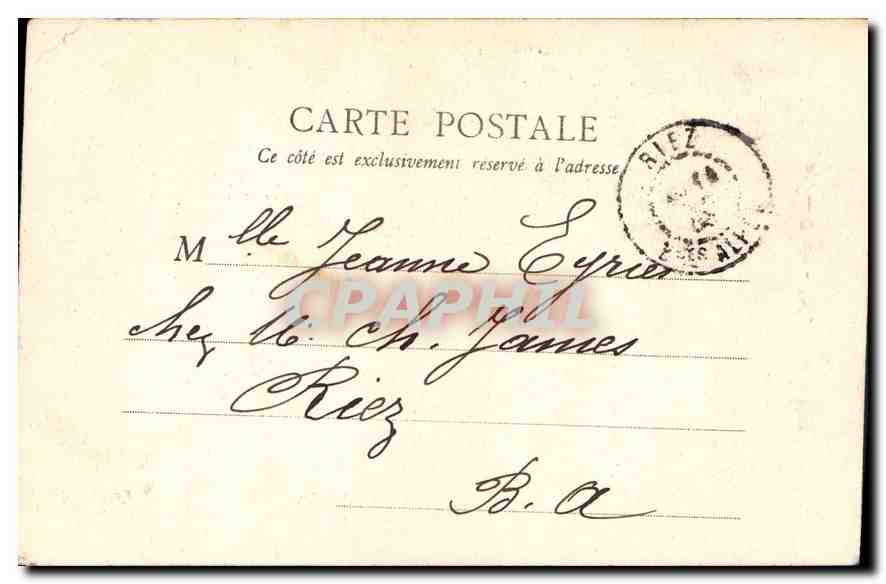 CARTE POSTALE
Ce côté est exclusivement réservé à l'adresse
RIEZ
Mlle Jeanne Eyriès
CPAPHIL
chez M. Ch. James
Riez
B. A